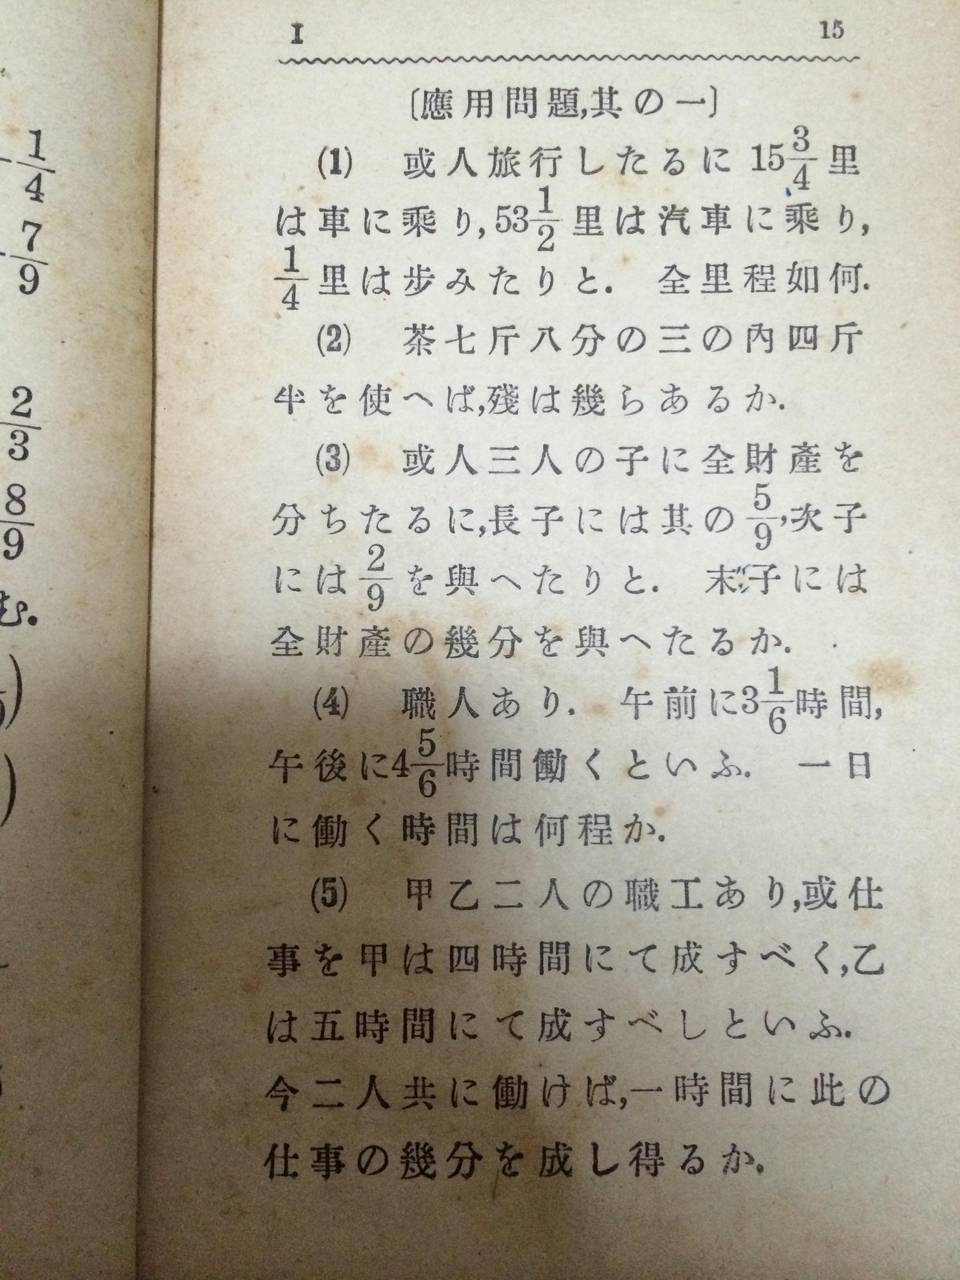 I 15
〔應用問題,其の一〕
(1) 或人旅行したるに 15 3/4 里
は車に乘り, 53 1/2 里は汽車に乘り,
1/4 里は步みたりと. 全里程如何.
(2) 茶七斤八分の三の內四斤
半を使へば,殘は幾らあるか.
(3) 或人三人の子に全財產を
分ちたるに,長子には其の 5/9,次子
には 2/9 を與へたりと. 末子には
全財產の幾分を與へたるか.
(4) 職人あり. 午前に 3 1/6 時間,
午後に 4 5/6 時間働くといふ. 一日
に働く時間は何程か.
(5) 甲乙二人の職工あり,或仕
事を甲は四時間にて成すべく,乙
は五時間にて成すべしといふ.
今二人共に働けば,一時間に此の
仕事の幾分を成し得るか.
1/4
7/9
2/3
8/9
む.